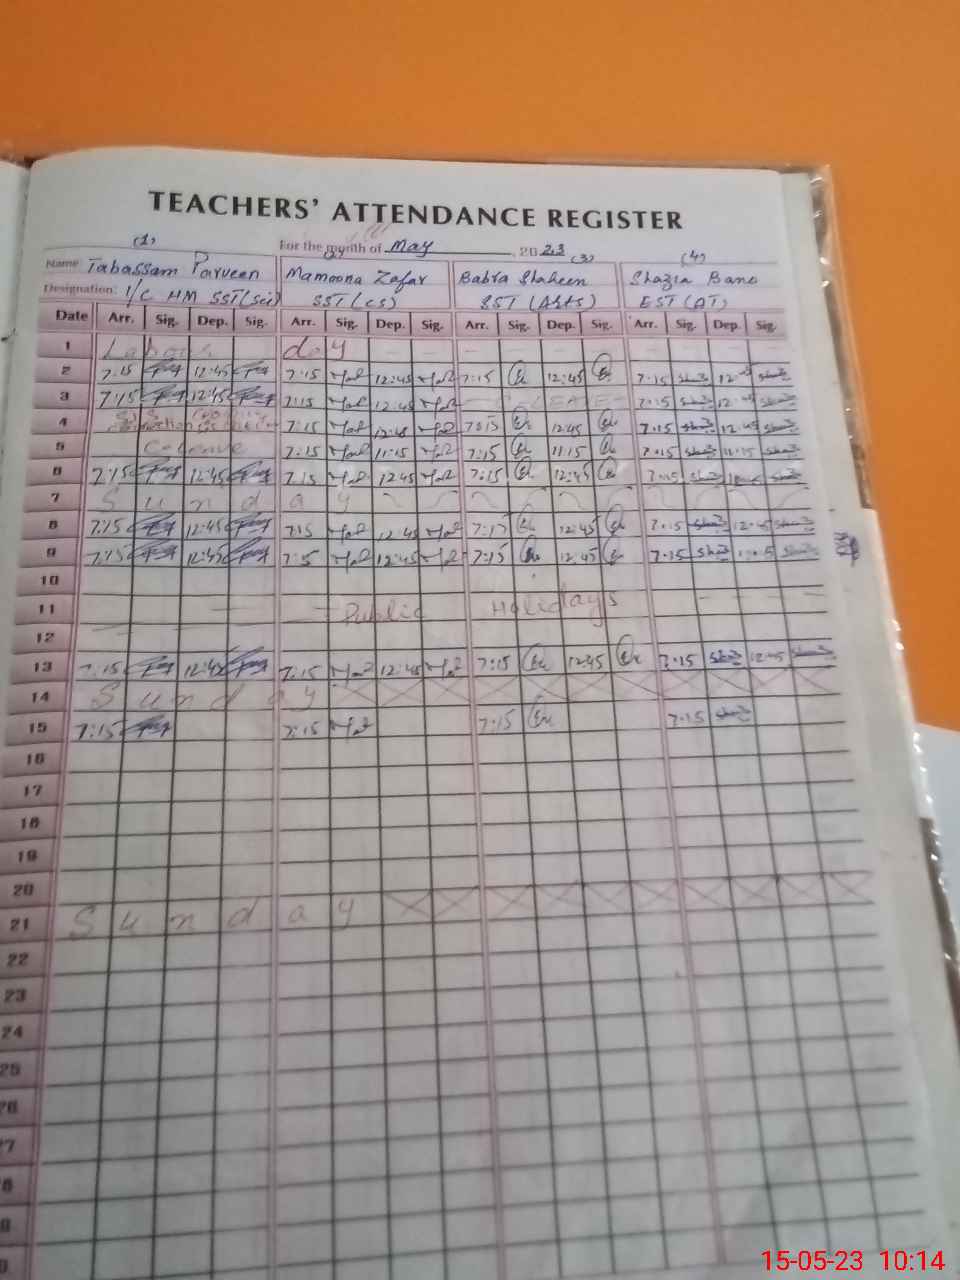 TEACHERS' ATTENDANCE REGISTER
For the month of May, 2023
(1) (3) (4)
Name Tabassam Parveen Mamoona Zafar Babra Shaheen Shazia Bano
Designation: I/C HM SST(Sci) SST(CS) SST(Arts) EST(AT)
Date Arr. Sig. Dep. Sig. Arr. Sig. Dep. Sig. Arr. Sig. Dep. Sig. Arr. Sig. Dep. Sig.
1 Labour day
2 7:15 12:45 7:15 12:45 7:15 12:45 7:15
3 7:15 12:45 7:15 12:45 C-LEAVE 7:15 12:45
4 7:15 12:45 7:15 12:45 7:15 12:45
5 C-Leave 7:15 11:15 7:15 11:15 7:15 11:15
6 7:15 12:45 7:15 12:45 7:15 12:45 7:15
7 Sunday
8 7:15 12:45 7:15 12:45 7:15 12:45 7:15 12:45
9 7:15 12:45 7:15 12:45 7:15 12:45 7:15
10
11 Public Holidays
12
13 7:15 12:45 7:15 12:45 7:15 12:45 7:15 12:45
14 Sunday
15 7:15 7:15 7:15 7:15
16
17
18
19
20
21 Sunday
22
23
24
25
26
27
15-05-23 10:14